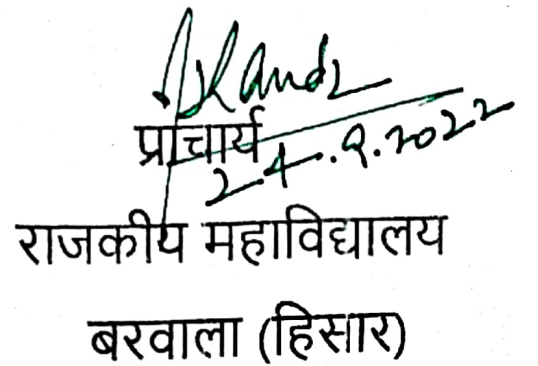 प्राचार्य
24.9.2022
राजकीय महाविद्यालय
बरवाला (हिसार)